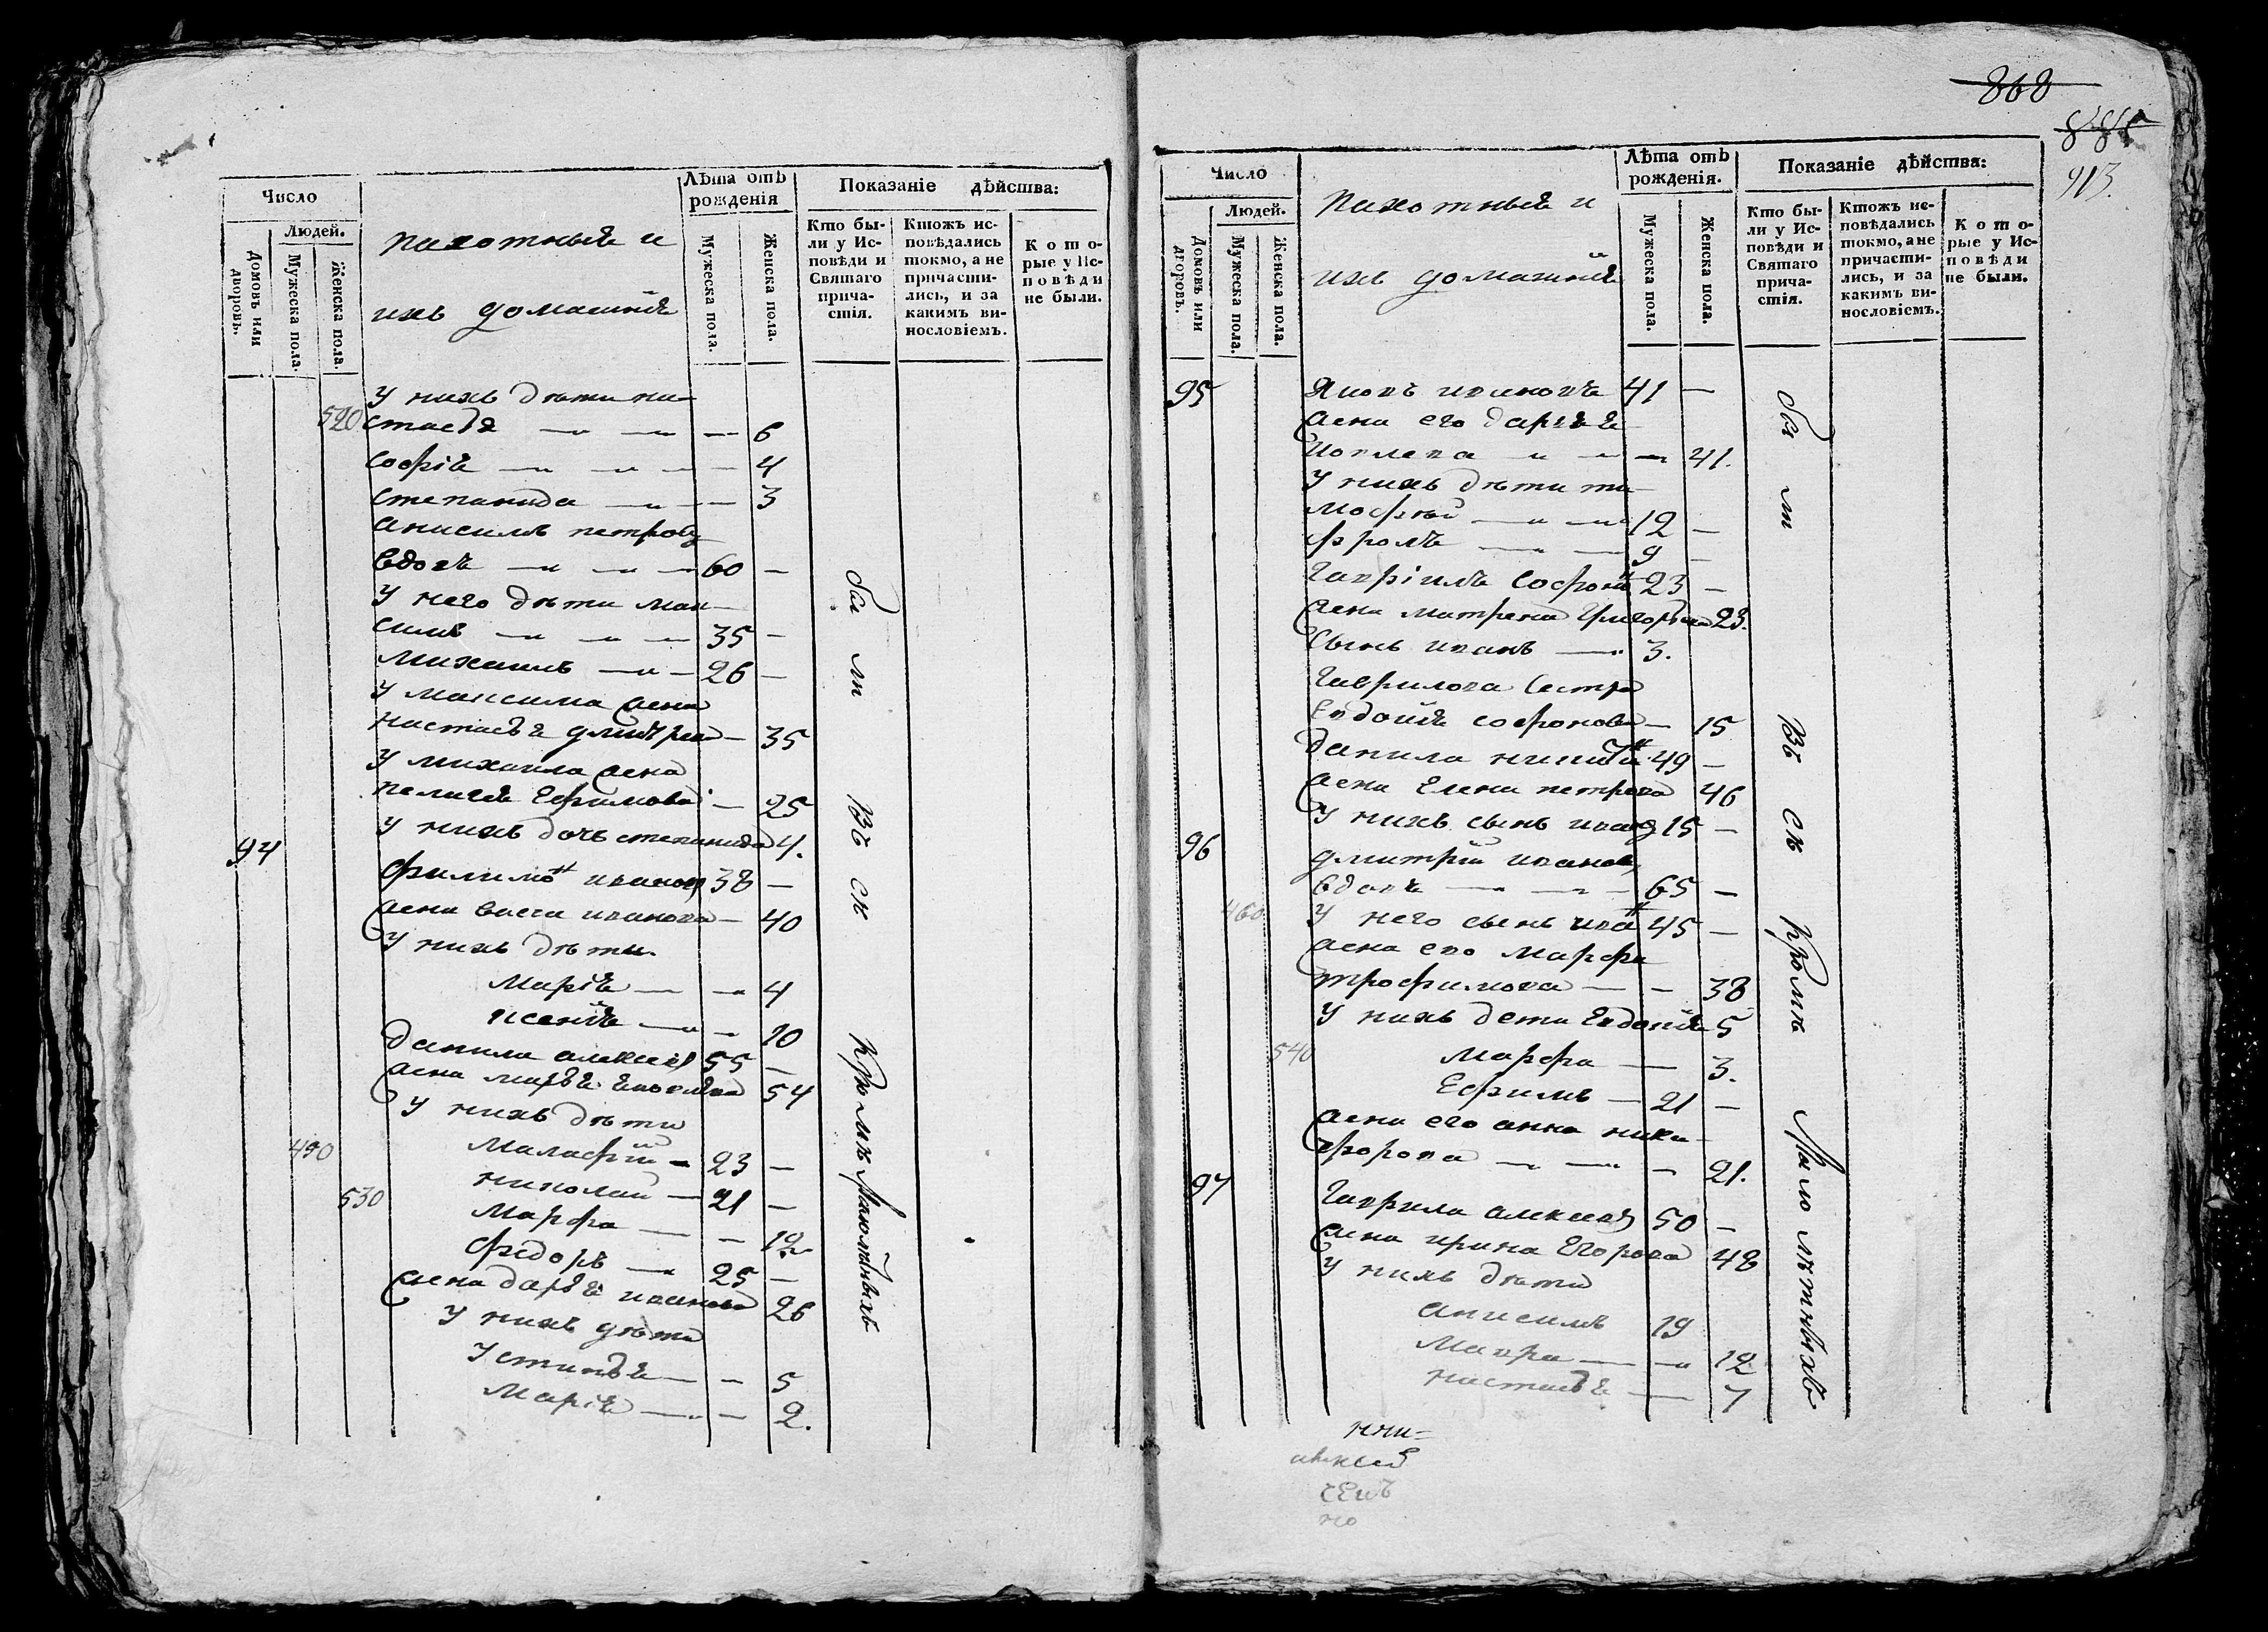 868
885
913.
Число
Людей.
Домовъ или дворовъ.
Мужеска пола.
Женска пола.
пахотныя и
ихъ домашнія
Лѣта отъ рожденія
Мужеска пола.
Женска пола.
Показаніе дѣйства:
Кто были у Исповѣди и Святаго причастія.
Ктожъ исповѣдались токмо, а не причастились, и за какимъ винословіемъ.
Которые у Исповѣди не были.
У нихъ дѣти на-
520 стасья — 6
софія — 4
степанида — 3
анисимъ петровъ
вдовъ 60 —
У него дѣти мак-
симъ 35 —
Михаилъ 26 —
У максима жена
настасья дмитрева — 35
У михаила жена
пелагея Ефимова — 25
У нихъ дочь степанида 4.
94 филимонъ ивановъ 38 —
жена васса иванова — 40
У нихъ дѣти
Марія — 4
ксенія — 10
данила алексеевъ 55 —
жена марья яковлева 54
У нихъ дѣти
490 Малафій 23 —
530 николай 21 —
Марфа — 12
федоръ 25 —
жена дарья иванова 26
У нихъ дѣти
Устинья — 5
Марія — 2.
бы
ли
въ
ск
кромѣ
малолѣтныхъ
Число
Людей.
Домовъ или дворовъ.
Мужеска пола.
Женска пола.
пахотныя и
ихъ домашнія
Лѣта отъ рожденія.
Мужеска пола.
Женска пола.
Показаніе дѣйства:
Кто были у Исповѣди и Святаго причастія.
Ктожъ исповѣдались токмо, а не причастились, и за какимъ винословіемъ.
Которые у Исповѣди не были.
95 Яковъ ивановъ 41 —
жена его дарья я
Иовлева — 41.
У нихъ дѣти ти
мофей 12 —
фролъ 9 —
Гавріилъ софоно 23 —
жена матрена григорьева 23.
Сынъ иванъ 3.
Гаврилова сестра
Евдокія софонова — 15
данила никити 49 —
жена Елена петрова 46
У нихъ сынъ иванъ 15 —
96 дмитрій ивановъ
вдовъ 65 —
460 У него сынъ иванъ 45 —
жена его марфа
трофимова — 38
У нихъ дети Евдокія 5
540 Марфа 3.
Ефимъ 21 —
жена его анна ники-
форова — 21.
97 Гаврила алексеевъ 50 —
жена ирина Егорова 48
У нихъ дѣти
анисимъ 19
Мавра — 12
настасья 7
бы
ли
въ
ск
кромѣ
малолѣтныхъ
но